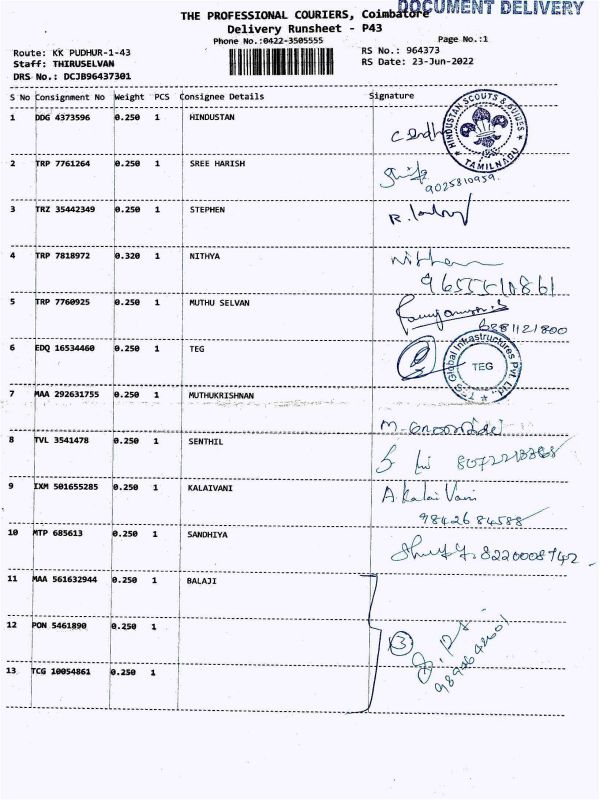 DOCUMENT DELIVERY
THE PROFESSIONAL COURIERS, Coimbatore
Delivery Runsheet - P43
Phone No.:0422-3505555 Page No.:1
Route: KK PUDHUR-1-43 RS No.: 964373
Staff: THIRUSELVAN RS Date: 23-Jun-2022
DRS No.: DCJB96437301
S No Consignment No Weight PCS Consignee Details Signature
1 DDG 4373596 0.250 1 HINDUSTAN
HINDUSTAN SCOUTS & GUIDES
TAMILNADU
2 TRP 7761264 0.250 1 SREE HARISH
9025810959.
3 TRZ 35442349 0.250 1 STEPHEN
4 TRP 7818972 0.320 1 NITHYA
5 TRP 7760925 0.250 1 MUTHU SELVAN
6 EDQ 16534460 0.250 1 TEG
TEG Global Infrastructures Pvt. Ltd.
TEG
7 MAA 292631755 0.250 1 MUTHUKRISHNAN
8 TVL 3541478 0.250 1 SENTHIL
9 IXM 501655285 0.250 1 KALAIVANI
A.KalaiVani
9842684588
10 MTP 685613 0.250 1 SANDHIYA
8220008742
11 MAA 561632944 0.250 1 BALAJI
12 PON 5461890 0.250 1
3
13 TCG 10054861 0.250 1